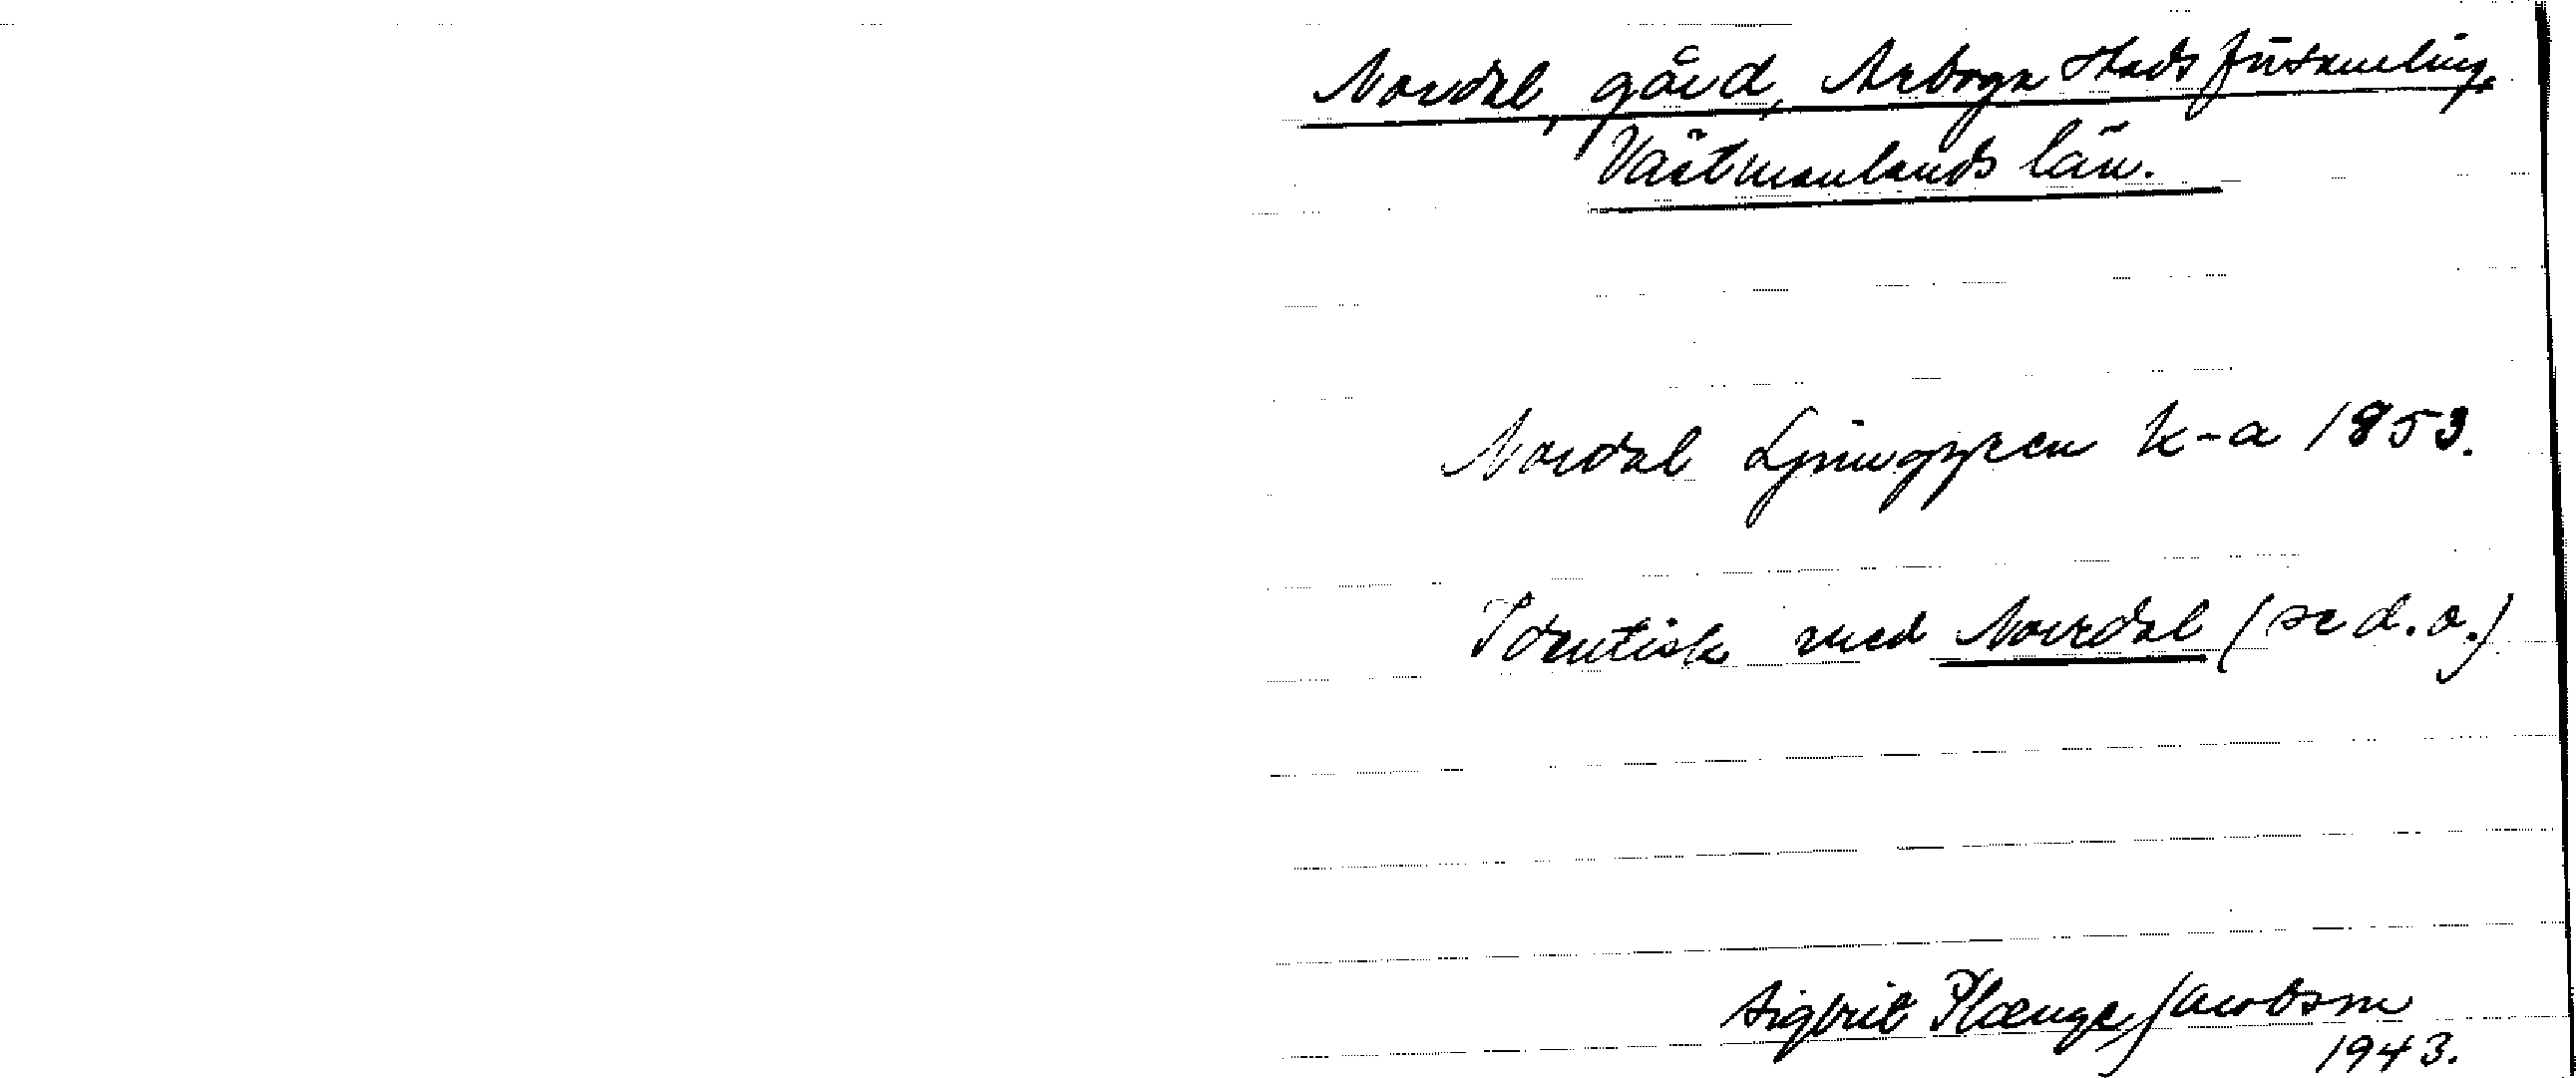 Nordal, gård, Arboga stadsförsamling,
Västmanlands län.
Nordal Ljunggren k-a 1853.
Identisk med Norrdal (se d.o.)
Sigbrit Plænge Jacobson
1943.